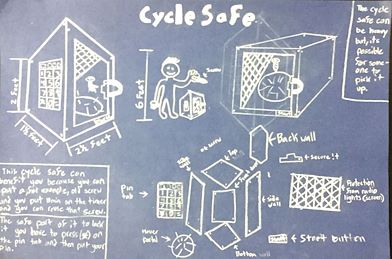 Cycle Safe
The cycle
safe can
be heavy
but, its
possible
for some-
one to
pick it
up.
2 feet
1½ feet
2½ feet
6 feet
screw
screw
top
front
Back wall
secure it
side
wall
Bottom wall
Pin
tab
Timer
Protection
from radio
lights (screen)
Start button
This cycle safe can
benefit you because you can
put a for example, old screw
and you put 8min on the timer
and you can reuse that screw.
The safe part of it to lock
it you have to press (pe) on
the pin tab and then put your
pin.